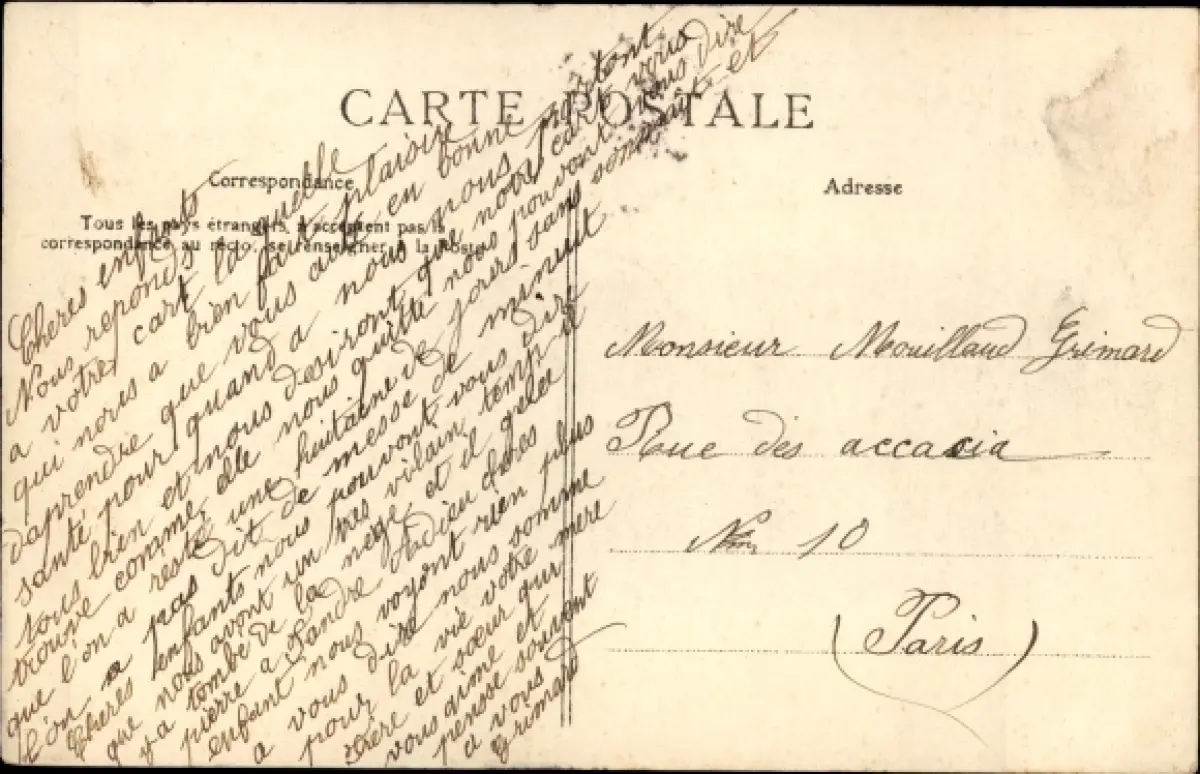 CARTE POSTALE
Correspondance
Adresse
Tous les pays étrangers n'acceptent pas la
correspondance au recto, se renseigner à la Poste
Cheres enfants
Nous reponds
a votre cart la quelle
qui nous a bien fait plaisir
d'aprendre que vous aite en bonne
santé pour quand a nous nous portont
tous bien et nous desiront que notre cart vous
trouve comme elle nous quitte nous pouvont vous dire
que l'on a resté une huitaine de jorers sans
l'on a pas dit de messe de minuit
Cheres enfants nous pouvont vous dir
que nous avont un tres vilain temp il
y a tombé de la nege et il gelle
pierre a fandre Adieu cheres
enfant nous voyont rien plus
a vous dire nous somme
pour la vie votre mere
père et sœur qui
vous aime et
pense souvant
a vous
Grimard
Monsieur Mouillaud Grimard
Rue des accacia
10
(Paris)